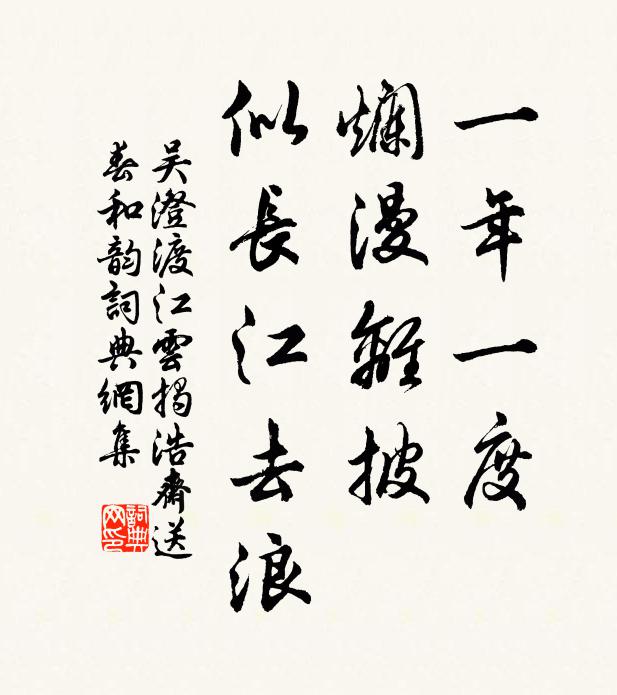 一年一度
爛漫離披
似長江去浪
吳澄渡江雲揭浩齋送
春和韵詞典網集
詞典网印